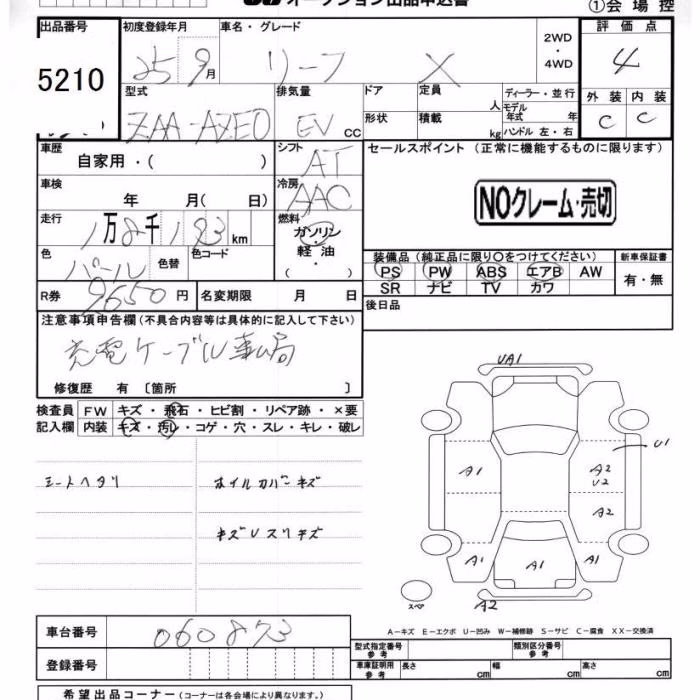 オークション出品申込書 ①会場控
出品番号 初度登録年月 車名・グレード 2WD・4WD 評価点
5210 25 9月 リーフ X 4
型式 排気量 ドア 定員 人 ディーラー・並行 外装 内装
ZAA-AZE0 EV cc 形状 積載 kg モデル年式 年 C C
ハンドル 左・右
車歴 シフト セールスポイント (正常に機能するものに限ります)
自家用・( ) AT
車検 冷房 NOクレーム・売切
年 月( 日) AAC
走行 燃料
1万8千193km ガソリン・軽油・( )
色 色替 色コード 装備品 (純正品に限り〇をつけてください) 新車保証書
パール PS PW ABS エアB AW 有・無
R券 9650円 名変期限 月 日 SR ナビ TV カワ
後日品
注意事項申告欄(不具合内容等は具体的に記入して下さい)
充電ケーブル薬局
修復歴 有 〔箇所 〕
検査員 FW キズ・飛石・ヒビ割・リペア跡・×要
記入欄 内装 キズ・汚レ・コゲ・穴・スレ・キレ・破レ
シートヘタリ ホイルカバーキズ
キズUスリキズ
UA1
U1
A1 A2
U2
A2
A1 A1 A1
スペア A2
A−キズ E−エクボ U−凹み W−補修跡 S−サビ C−腐食 XX−交換済
車台番号 060873 型式指定番号 参考 類別区分番号 参考
登録番号 車庫証明用 参考 長さ cm 幅 cm 高さ cm
希望出品コーナー (コーナーは各会場により異なります。)